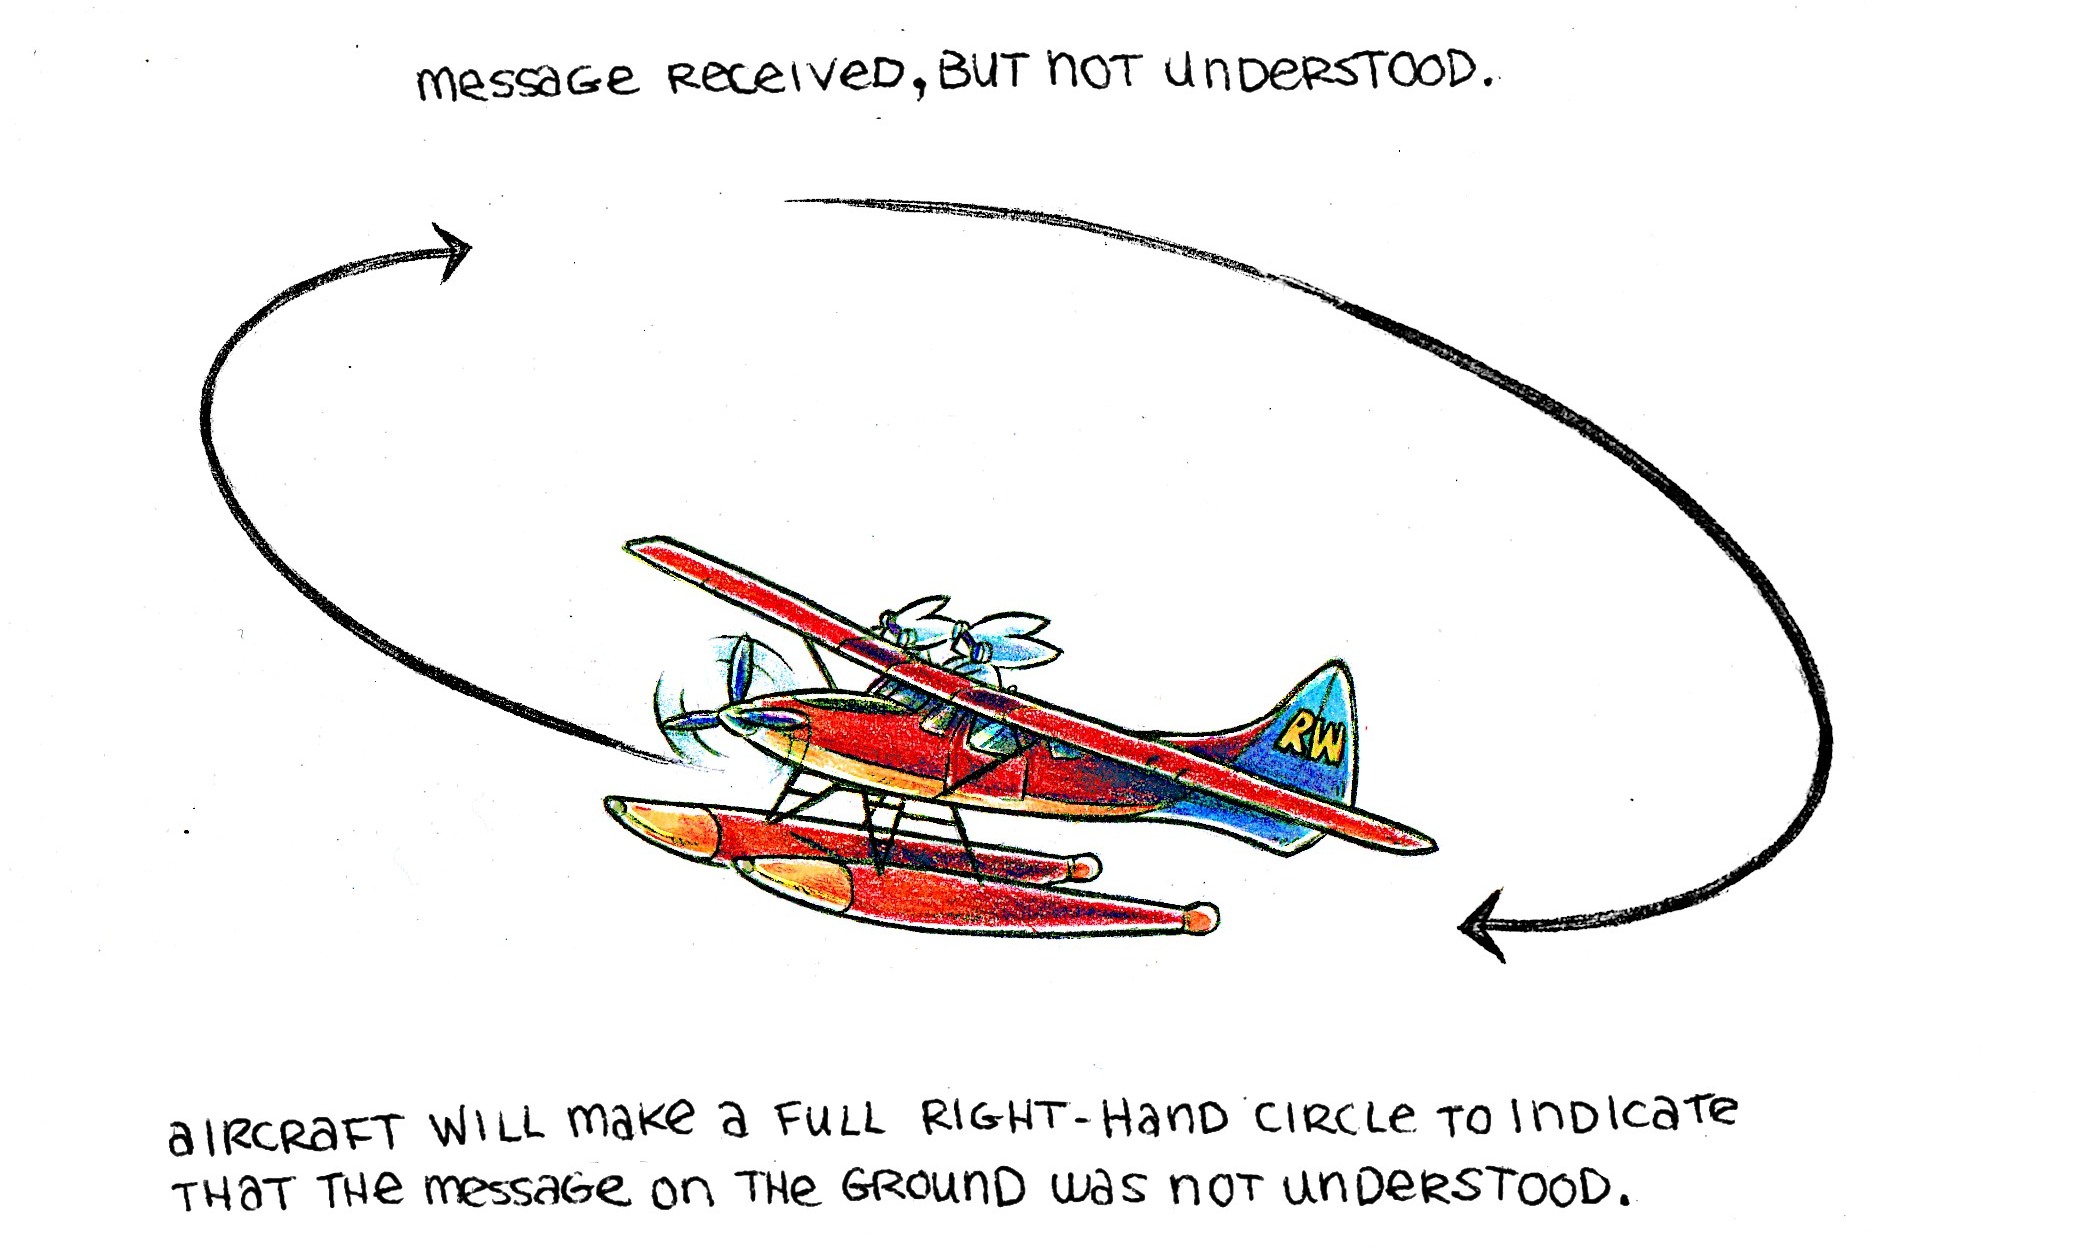 message Received, BUT NOT UNDERSTOOD.
RW
AIRCRAFT WILL make a FULL RIGHT-HAND CIRCLE TO INDICATE
THAT THE message on THE GROUND was NOT UNDERSTOOD.